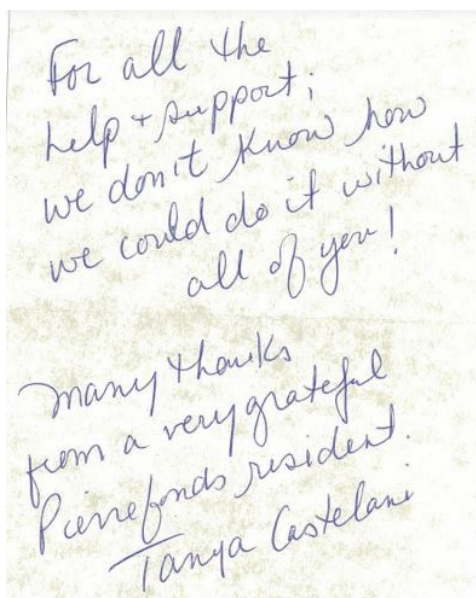 For all the
help + support;
we don't know how
we could do it without
all of you!
many thanks
from a very grateful
Pierrefonds resident.
Tanya Castelani